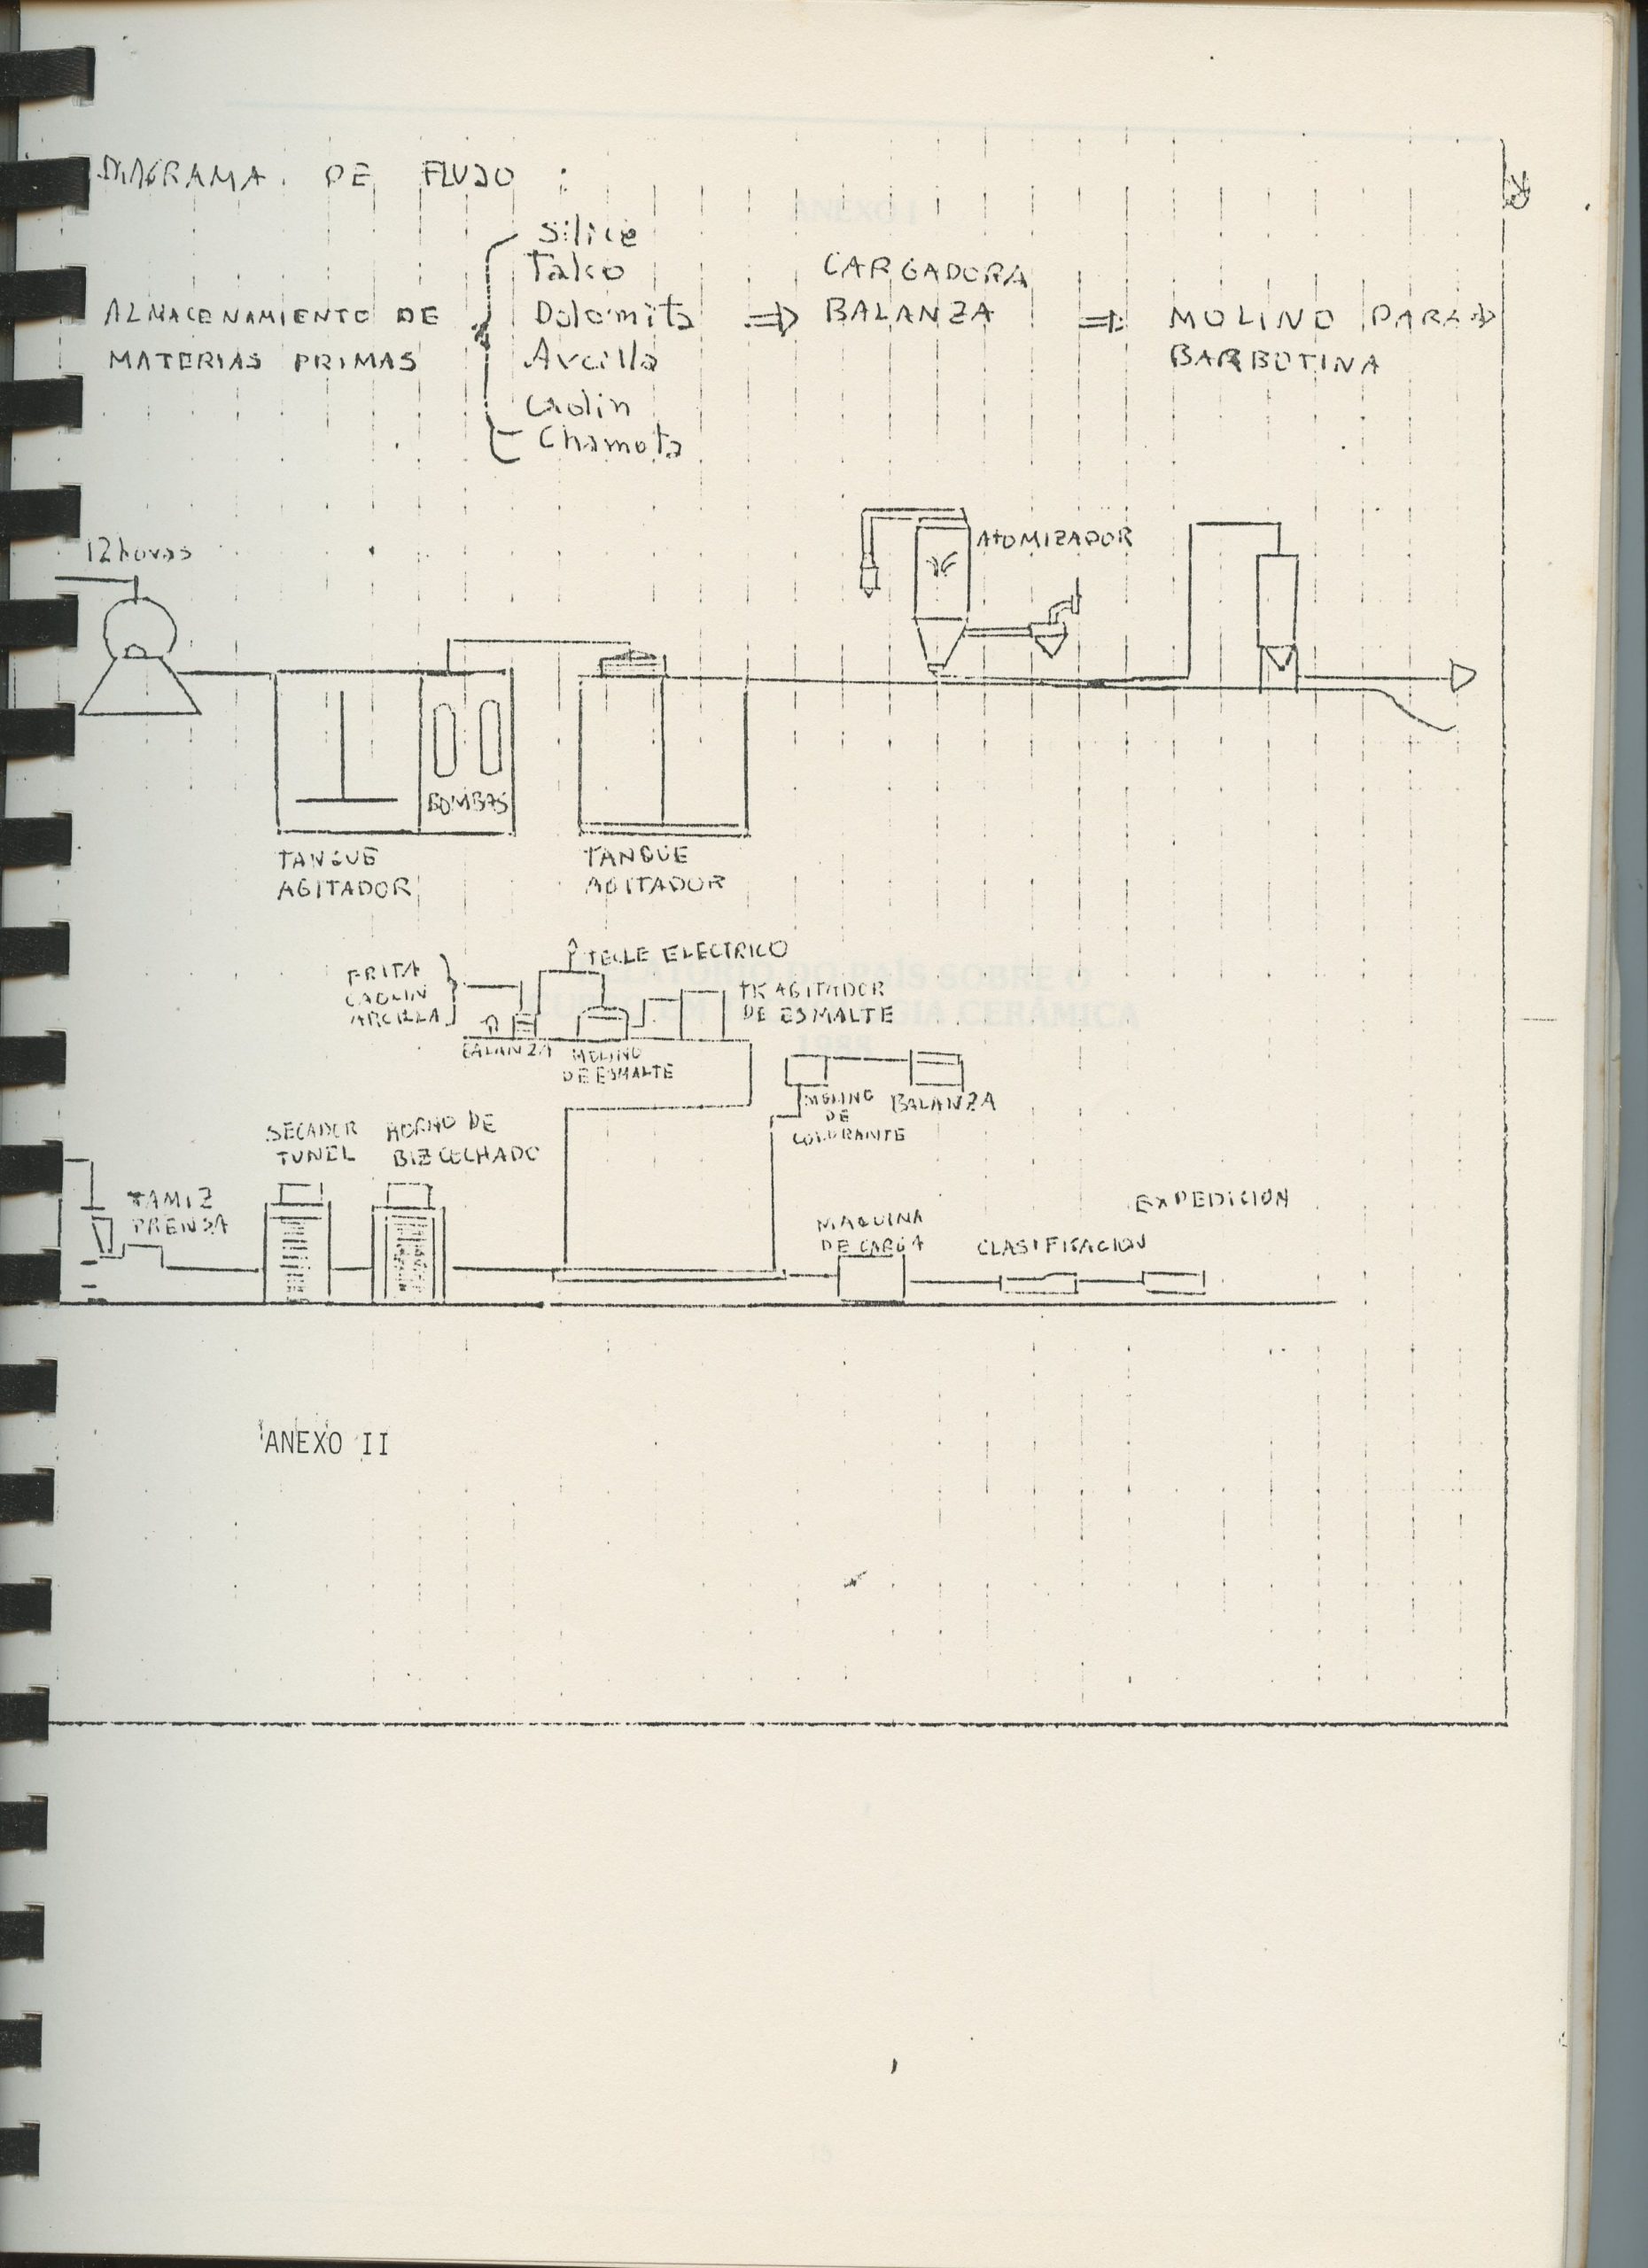 DIAGRAMA DE FLUJO :
ALMACENAMIENTO DE
MATERIAS PRIMAS
Silice
Talco
Dolomita
Arcilla
Caolin
Chamota
CARGADORA
BALANZA
MOLINO PARA
BARBOTINA
12 horas
ATOMIZADOR
BOMBAS
TANQUE
AGITADOR
TANQUE
AGITADOR
FRITA
CAOLIN
ARCILLA
TECLE ELECTRICO
TK AGITADOR
DE ESMALTE
BALANZA
MOLINO
DE ESMALTE
MOLINO
DE
COLORANTE
BALANZA
SECADOR
TUNEL
HORNO DE
BIZCOCHADO
TAMIZ
PRENSA
MAQUINA
DE CARGA
CLASIFICACION
EXPEDICION
ANEXO II
ANEXO I
RELATÓRIO DO PAÍS SOBRE O
CURSO EM TECNOLOGIA CERÂMICA
1988